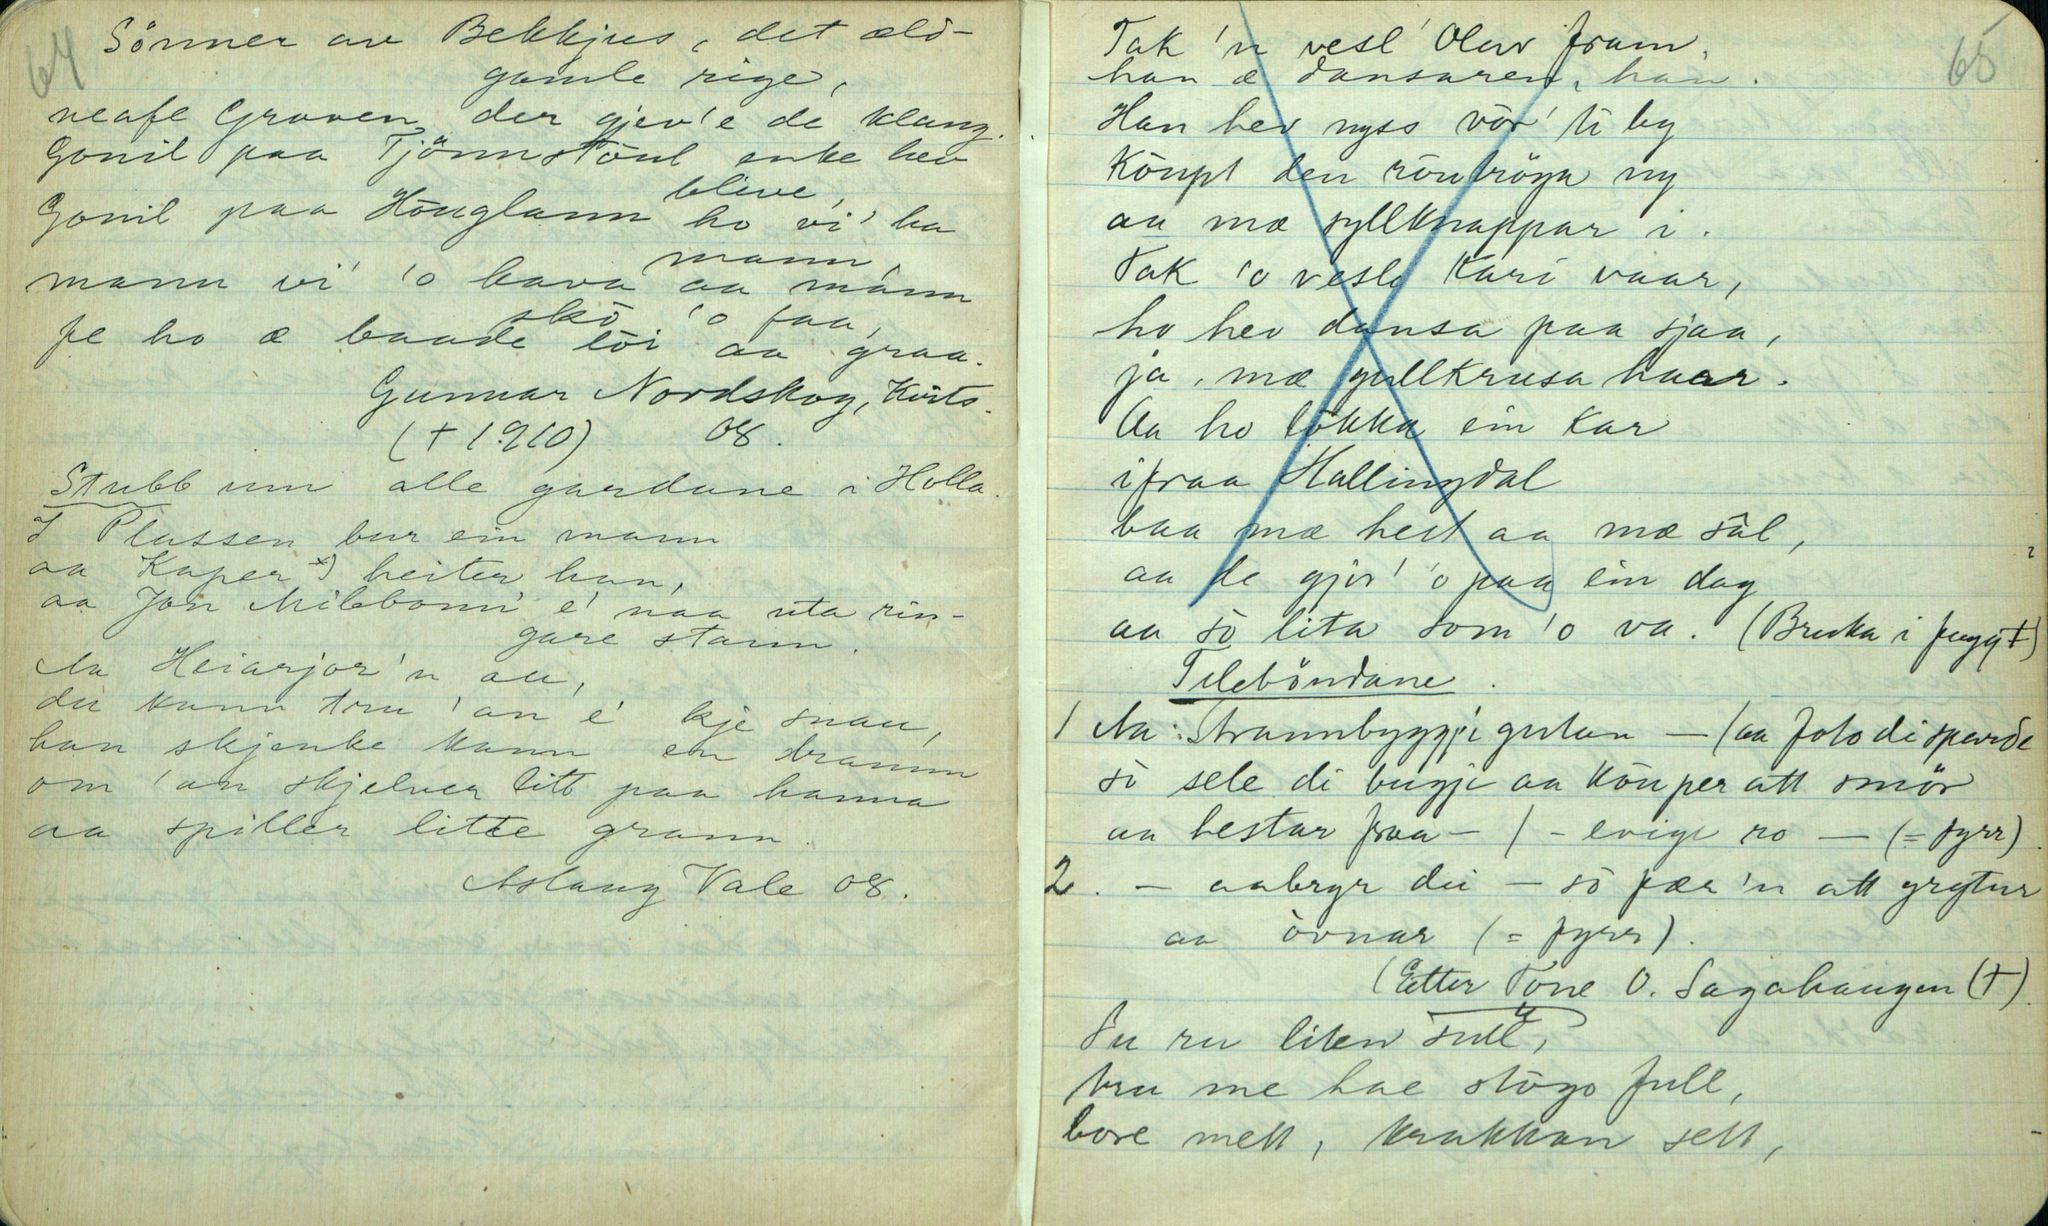 64
Sönner av Bekkjus, det æld-
gamle rige,
neafe Graven der gjev'e de klang.
Gonil paa Tjönnstöul enke hev
bleve,
Gonil paa Höuglann ho vi' ha
mann,
mann vi' 'o hava aa mann
skò 'o faa,
fe ho æ baade löi aa graa.
Gunnar Nordskog,
(† 1910) 08.
Stubb um alle gardane i Holla.
I Plassen bur ein mann
aa Kaper *) heiter han,
aa Jon Milebonn e' naa uta rin-
gare stann.
Aa Heiarjor'n au,
du kann tru 'an e' kje snau,
han skjenke kann en dramm
om 'an skjelver litt paa hanna
aa spiller litte grann.
Aslaug Vale 08.
65
Tak 'n vesl' Olav fram,
han æ dansaren, han.
Han hev nyss vör' ti by
Köupt den röutröya ny
aa mæ syllknappar i.
Tak 'o vesle Kari vaar,
ho hev dansa paa sjaa,
ja, mæ gullkrusa haar.
Aa ho lökka ein kar
ifraa Hallingdal
baa mæ hest aa mæ sâl,
aa de gjör' 'o paa ein dag
aa sò lita som 'o va. (Bruka i
Teleböndane.
1 Aa: Strannbyggji gutan — (aa foto di spende
sò sele di buggji aa köuper att smör
aa hestar fraa — / - evige ro — (= fyrr).
2. — aabryr dei — sò fær 'n att grytur
aa òvnar (= fyrr).
(Etter Tone O. Sagahaugen (†).
Su ru liten sull,
bru me hae stògo full,
bore mett, krakkan sett,